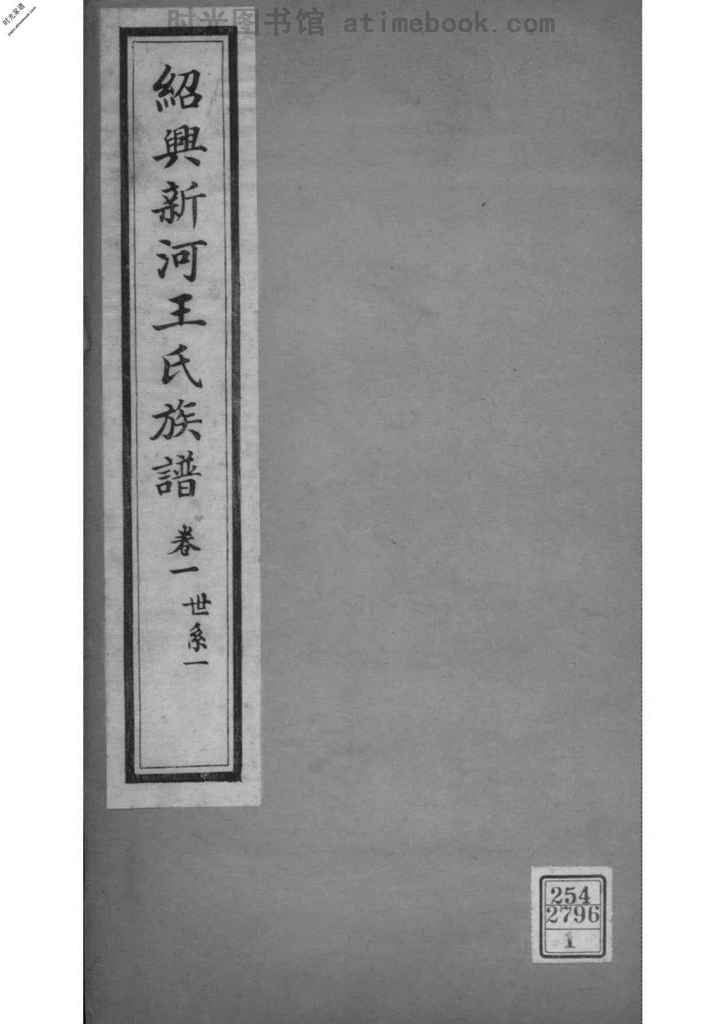 时光图书馆 atimebook.com
紹興新河王氏族譜
卷一
世系一
254
2796
1